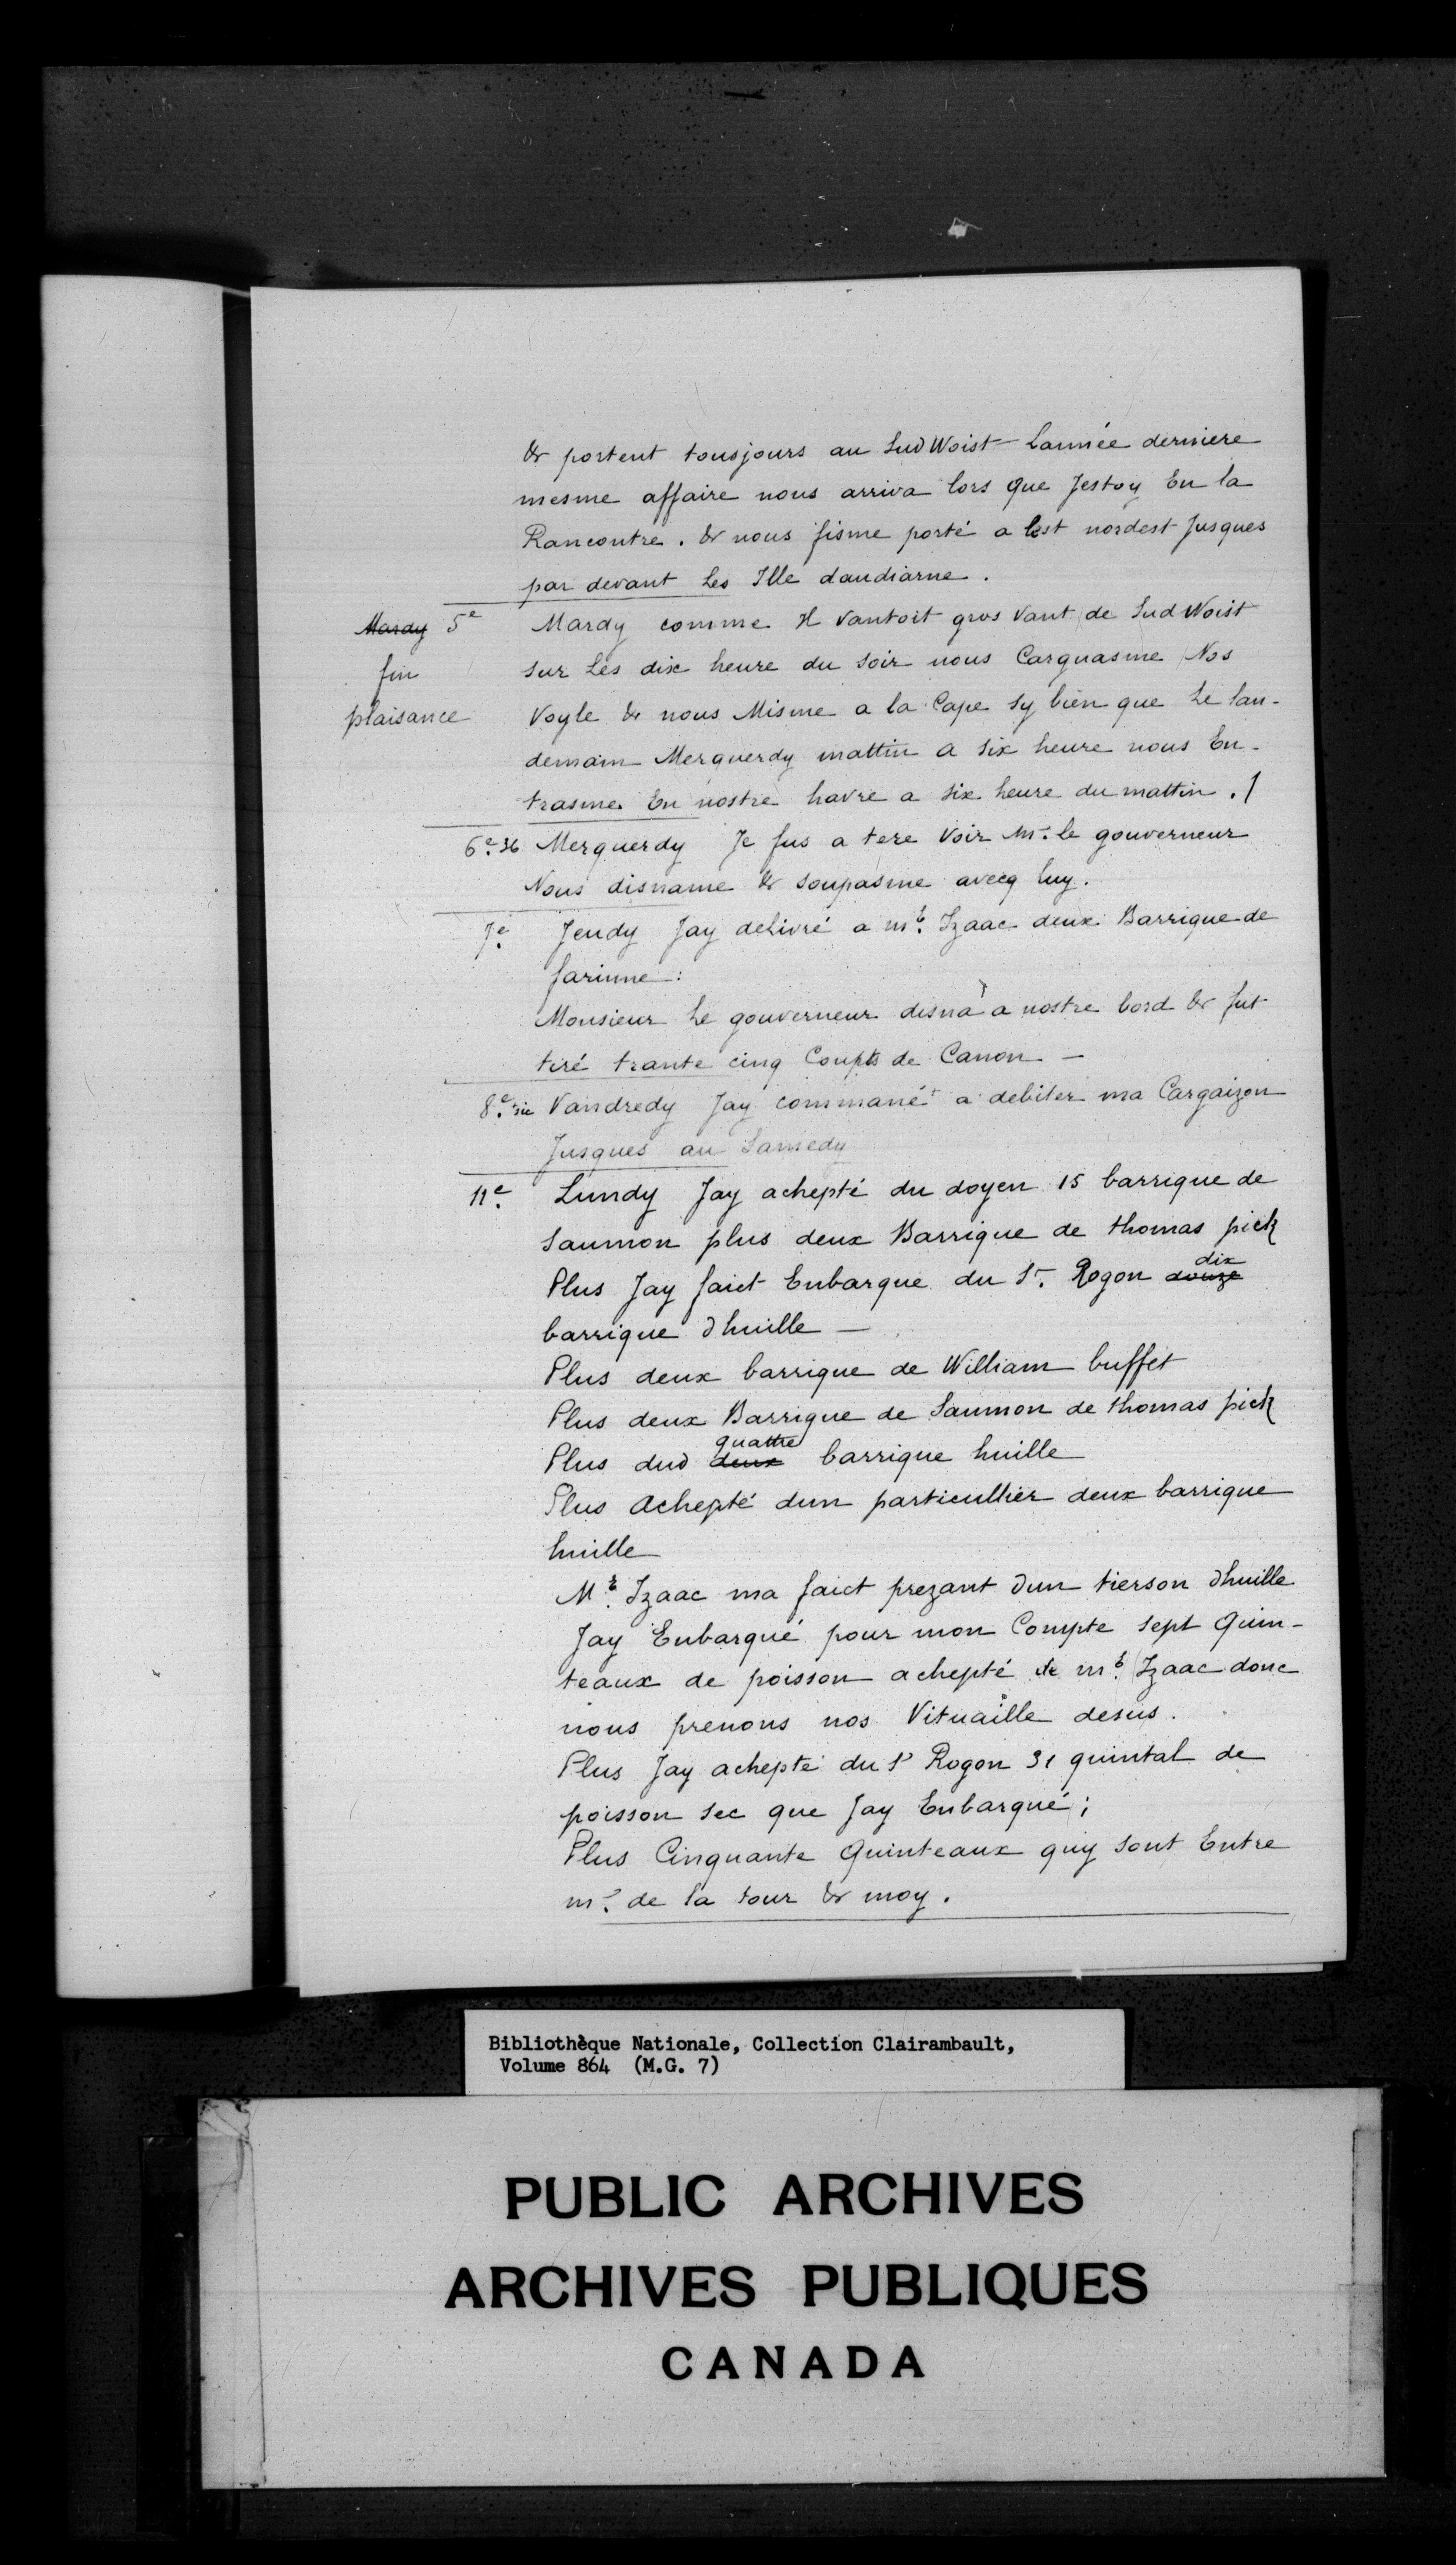 & portent tousjours au Sud Woist Lannée derniere
mesme affaire nous arriva lors que Jestoy En la
Rancontre. & nous fisme porté a lest nordest Jusques
par devant Les Ille daudiarne.
Mardy 5e Mardy comme Il vantoit gros vant de Sud Woist
fin sur Les dix heure du soir nous Carguasme Nos
plaisance Voyle & nous Misme a la Cape sy bien que Le lan-
demain Merquerdy mattin a six heure nous En-
trasme En nostre havre a six heure du mattin. /
6e. 36 Merquerdy Je fus a tere voir Mr. le gouverneur
Nous disname & soupasme avecq luy.
7e. Jeudy Jay delivré a mr. Izaac deux Barrique de
farinne:
Monsieur Le gouverneur disna a nostre bord & fut
tiré trante cinq Coupts de Canon —
8e. Vandredy Jay commané a debiter ma Cargaizon
Jusques au Samedy
11e. Lundy Jay achepté du doyen 15 barrique de
Saumon plus deux Barrique de thomas pick
Plus Jay faict Enbarque du Sr. Rogon douze dix
barrique dhuille —
Plus deux barrique de William buffet
Plus deux Barrique de Saumon de thomas pick
Plus dud deux quattre barrique huille
Plus Achepté dun particullier deux barrique
huille
Mr. Izaac ma faict prezant dun tierson dhuille
Jay Enbarqué pour mon Compte sept Quin-
teaux de poisson achepté de mr. Izaac donc
nous prenons nos Vituaille desus.
Plus Jay achepté du Sr Rogon 31 quintal de
poisson sec que Jay Enbarqué;
Plus Cinquante Quinteaux quy sont Entre
mr. de la tour & moy.
Bibliothèque Nationale, Collection Clairambault,
Volume 864 (M.G. 7)
PUBLIC ARCHIVES
ARCHIVES PUBLIQUES
CANADA